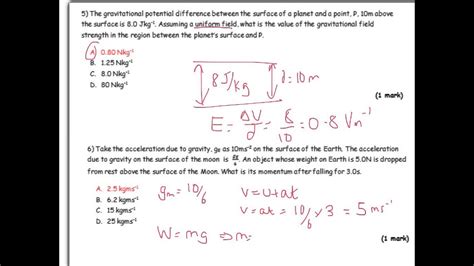 5) The gravitational potential difference between the surface of a planet and a point, P, 10m above
the surface is 8.0 Jkg⁻¹. Assuming a uniform field, what is the value of the gravitational field
strength in the region between the planet's surface and P.
A. 0.80 Nkg⁻¹
B. 1.25 Nkg⁻¹
C. 8.0 Nkg⁻¹
D. 80 Nkg⁻¹
8 J/kg
d=10m
(1 mark)
E = ΔV/d = 8/10 = 0.8 Vm⁻¹
6) Take the acceleration due to gravity, gE as 10ms⁻² on the surface of the Earth. The acceleration
due to gravity on the surface of the moon is gE/6. An object whose weight on Earth is 5.0N is dropped
from rest above the surface of Moon. What is its momentum after falling for 3.0s.
A. 2.5 kgms⁻¹
B. 6.2 kgms⁻¹
C. 15 kgms⁻¹
D. 25 kgms⁻¹
gm = 10/6
v = u+at
v = at = 10/6 × 3 = 5 ms⁻¹
W = mg ⇒ m=
(1 mark)